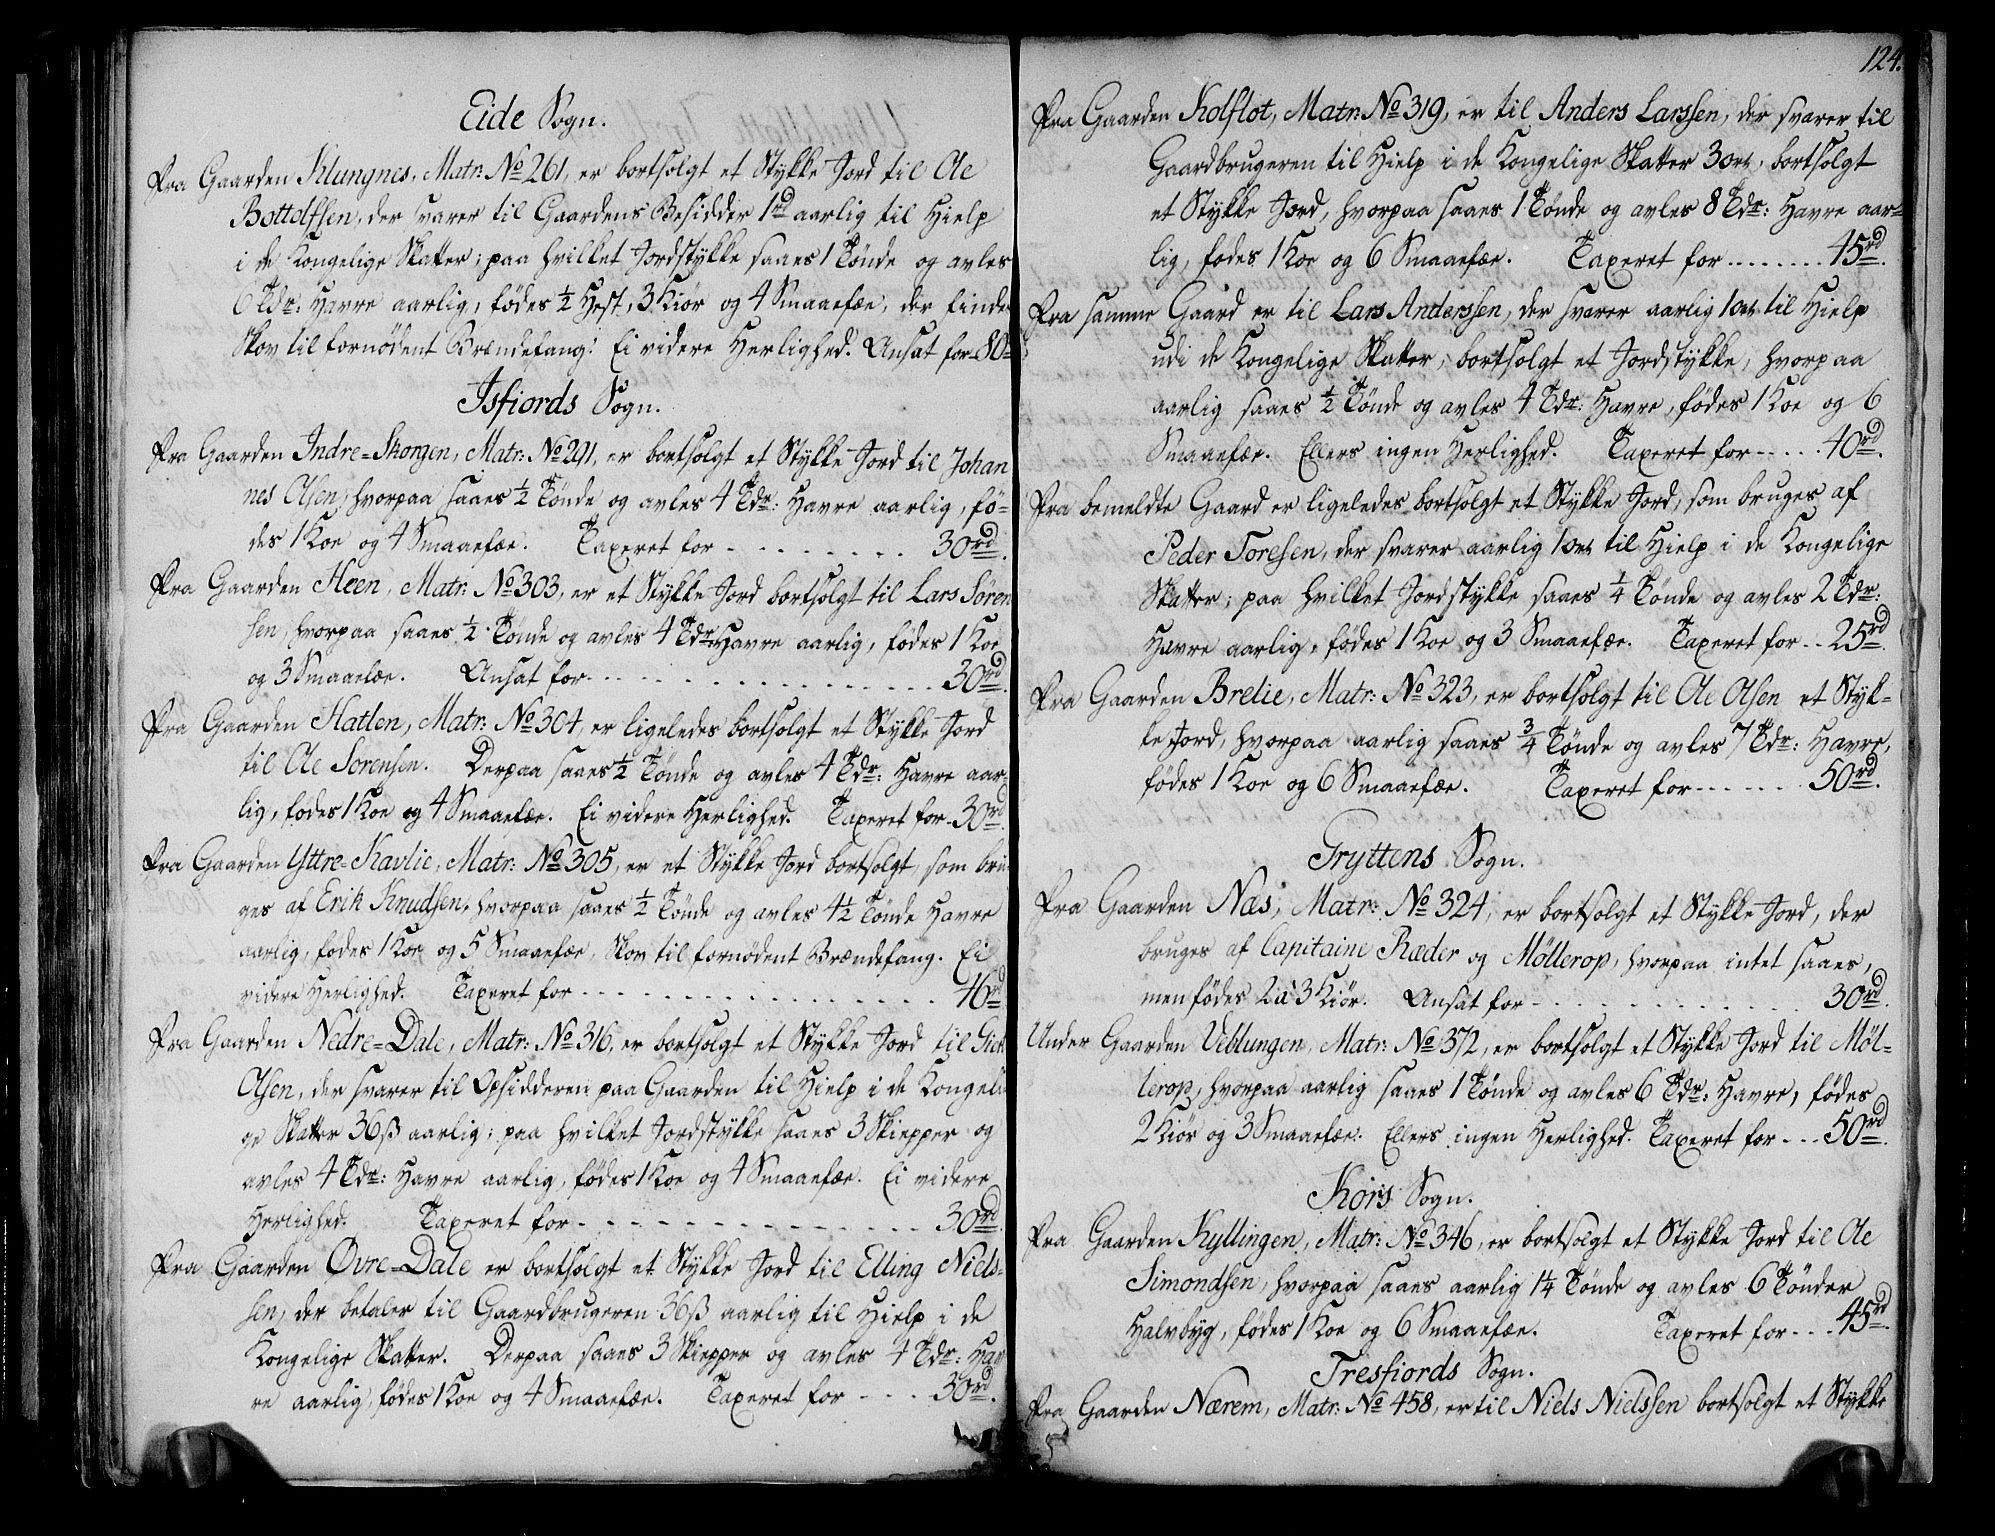 Eide Sogn.
Fra Gaarden Klungnes, Matr: No 261, er bortsolgt et Stykke Jord til Ole
Bottolfsen, der svarer til Gaardens Besidder 1rd aarlig til Hielp
i de Kongelige Skatter; paa hvilket Jordstykke saaes 1 Tönde og avles
6 Tdr: Havre aarlig, födes ½ Hest, 3 Kiör og 4 Smaaefæe, der finde
Skov til fornödent Brændefang: Ei videre Herlighed. Ansat for 80
Isfiords Sogn.
Fra Gaarden Indre=Skorgen, Matr: No 291, er bortsolgt et Stykke Jord til Johan
nes Olsen, hvorpaa saaes ½ Tönde og avles 4 Tdr: Havre aarlig, fö-
des 1 Koe og 4 Smaaefæe. Taxeret for - - - - - - - 30rd.
Fra Gaarden Heen, Matr: No 303, er et Stykke Jord bortsolgt til Lars Sören
sen, hvorpaa saaes ½ Tönde og avles 4 Tdr: Havre aarlig, födes 1 Koe
og 3 Smaaefæe. Ansat for - - - - - - - - - - - 30rd.
Fra Gaarden Hatlen, Matr: No 304, er ligeledes bortsolgt et Stykke Jord
til Ole Sorensen. Derpaa saaes ½ Tönde og avles 4 Tdr: Havre aar-
lig, födes 1 Koe og 4 Smaaefæe. Ei videre Herlighed. Taxeret for - 30rd.
Fra Gaarden Yttre=Kavlie, Matr: No 305, er et Stykke Jord bortsolgt, som bru-
ges af Erik Knudsen, hvorpaa saaes ½ Tönde og avles 4½ Tönde Havre
aarlig, födes 1 Koe og 5 Smaaefæe, Skov til fornödent Brændefang. Ei
videre Herlighed. Taxeret for - - - - - - - - - - - 46rd
Fra Gaarden Nedre=Dale, Matr: No 316, er bortsolgt et Stykke Jord til
Olsen, der svarer til Opsidderen paa Gaarden til Hielp i de Kongeli
ge Skatter 36ß aarlig; paa hvilket Jordstykke saaes 3 Skiepper og
avles 4 Tdr: Havre aarlig, födes 1 Koe og 4 Smaaefæe. Ei videre
Herlighed. Taxeret for - - - - - - - - - - - 30rd.
Fra Gaarden Øvre=Dale er bortsolgt et Stykke Jord til Elling Niels-
sen, der betaler til Gaardbrugeren 36ß aarlig til Hielp i de
Kongelige Skatter. Derpaa saaes 3 Skiepper og avles 4 Tdr: Hav
re aarlig, födes 1 Koe og 4 Smaaefæe. Taxeret for - - - - 30rd.
124.
Fra Gaarden Kolflot, Matr: No 319, er til Anders Larssen, der svarer til
Gaardbrugeren til Hielp i de Kongelige Skatter 3 Ort, bortsolgt
et Stykke Jord, hvorpaa saaes 1 Tönde og avles 8 Tdr: Havre aar-
lig, födes 1 Koe og 6 Smaaefæe. Taxeret for - - - - - - - 45rd.
Fra samme Gaard er til Lars Anderssen, der svarer aarlig 1 Ort til Hielp
udi de Kongelige Skatter, bortsolgt et Jordstykke, hvorpaa
aarlig saaes ½ Tönde og avles 4 Tdr: Havre, födes 1 Koe og 6
Smaaefæe. Ellers ingen Herlighed. Taxeret for - - - - - 40rd.
Fra bemeldte Gaard er ligeledes bortsolgt et Stykke Jord, som bruges af
Peder Toresen, der svarer aarlig 1 Ort til Hielp i de Kongelige
Skatter; paa hvilket Jordstykke saaes ¼ Tönde og avles 2 Tdr:
Havre aarlig, födes 1 Koe og 3 Smaaefæe. Taxeret for - - 25rd.
Fra Gaarden Brelie, Matr: No 323, er bortsolgt til Ole Olsen et Styk-
ke Jord, hvorpaa aarlig saaes ¾ Tönde og avles 7 Tdr: Havre,
födes 1 Koe og 6 Smaaefæe. Taxeret for - - - - - - 50rd.
Gryttens Sogn.
Fra Gaarden Næs, Matr: No 324, er bortsolgt et Stykke Jord, der
bruges af Capitaine Ræder og Møllerop, hvorpaa intet saaes,
men födes 2 à 3 Kiör. Ansat for - - - - - - - - - 30rd.
Under Gaarden Veblungen, Matr: No 372, er bortsolgt et Stykke Jord til Møl-
lerop, hvorpaa aarlig saaes 1 Tönde og avles 6 Tdr: Havre, födes
2 Kiör og 3 Smaaefæe. Ellers ingen Herlighed. Taxeret for - - - 50rd.
Kors Sogn.
Fra Gaarden Kyllingen, Matr: No 346, er bortsolgt et Stykke Jord til Ole
Simondsen, hvorpaa saaes aarlig 1¼ Tönde og avles 6 Tönder
Halvbyg, födes 1 Koe og 6 Smaaefæe. Taxeret for - - - 45rd.
Tresfiords Sogn.
Fra Gaarden Nærem, Matr: No 458, er til Niels Nielssen bortsolgt et Stykke